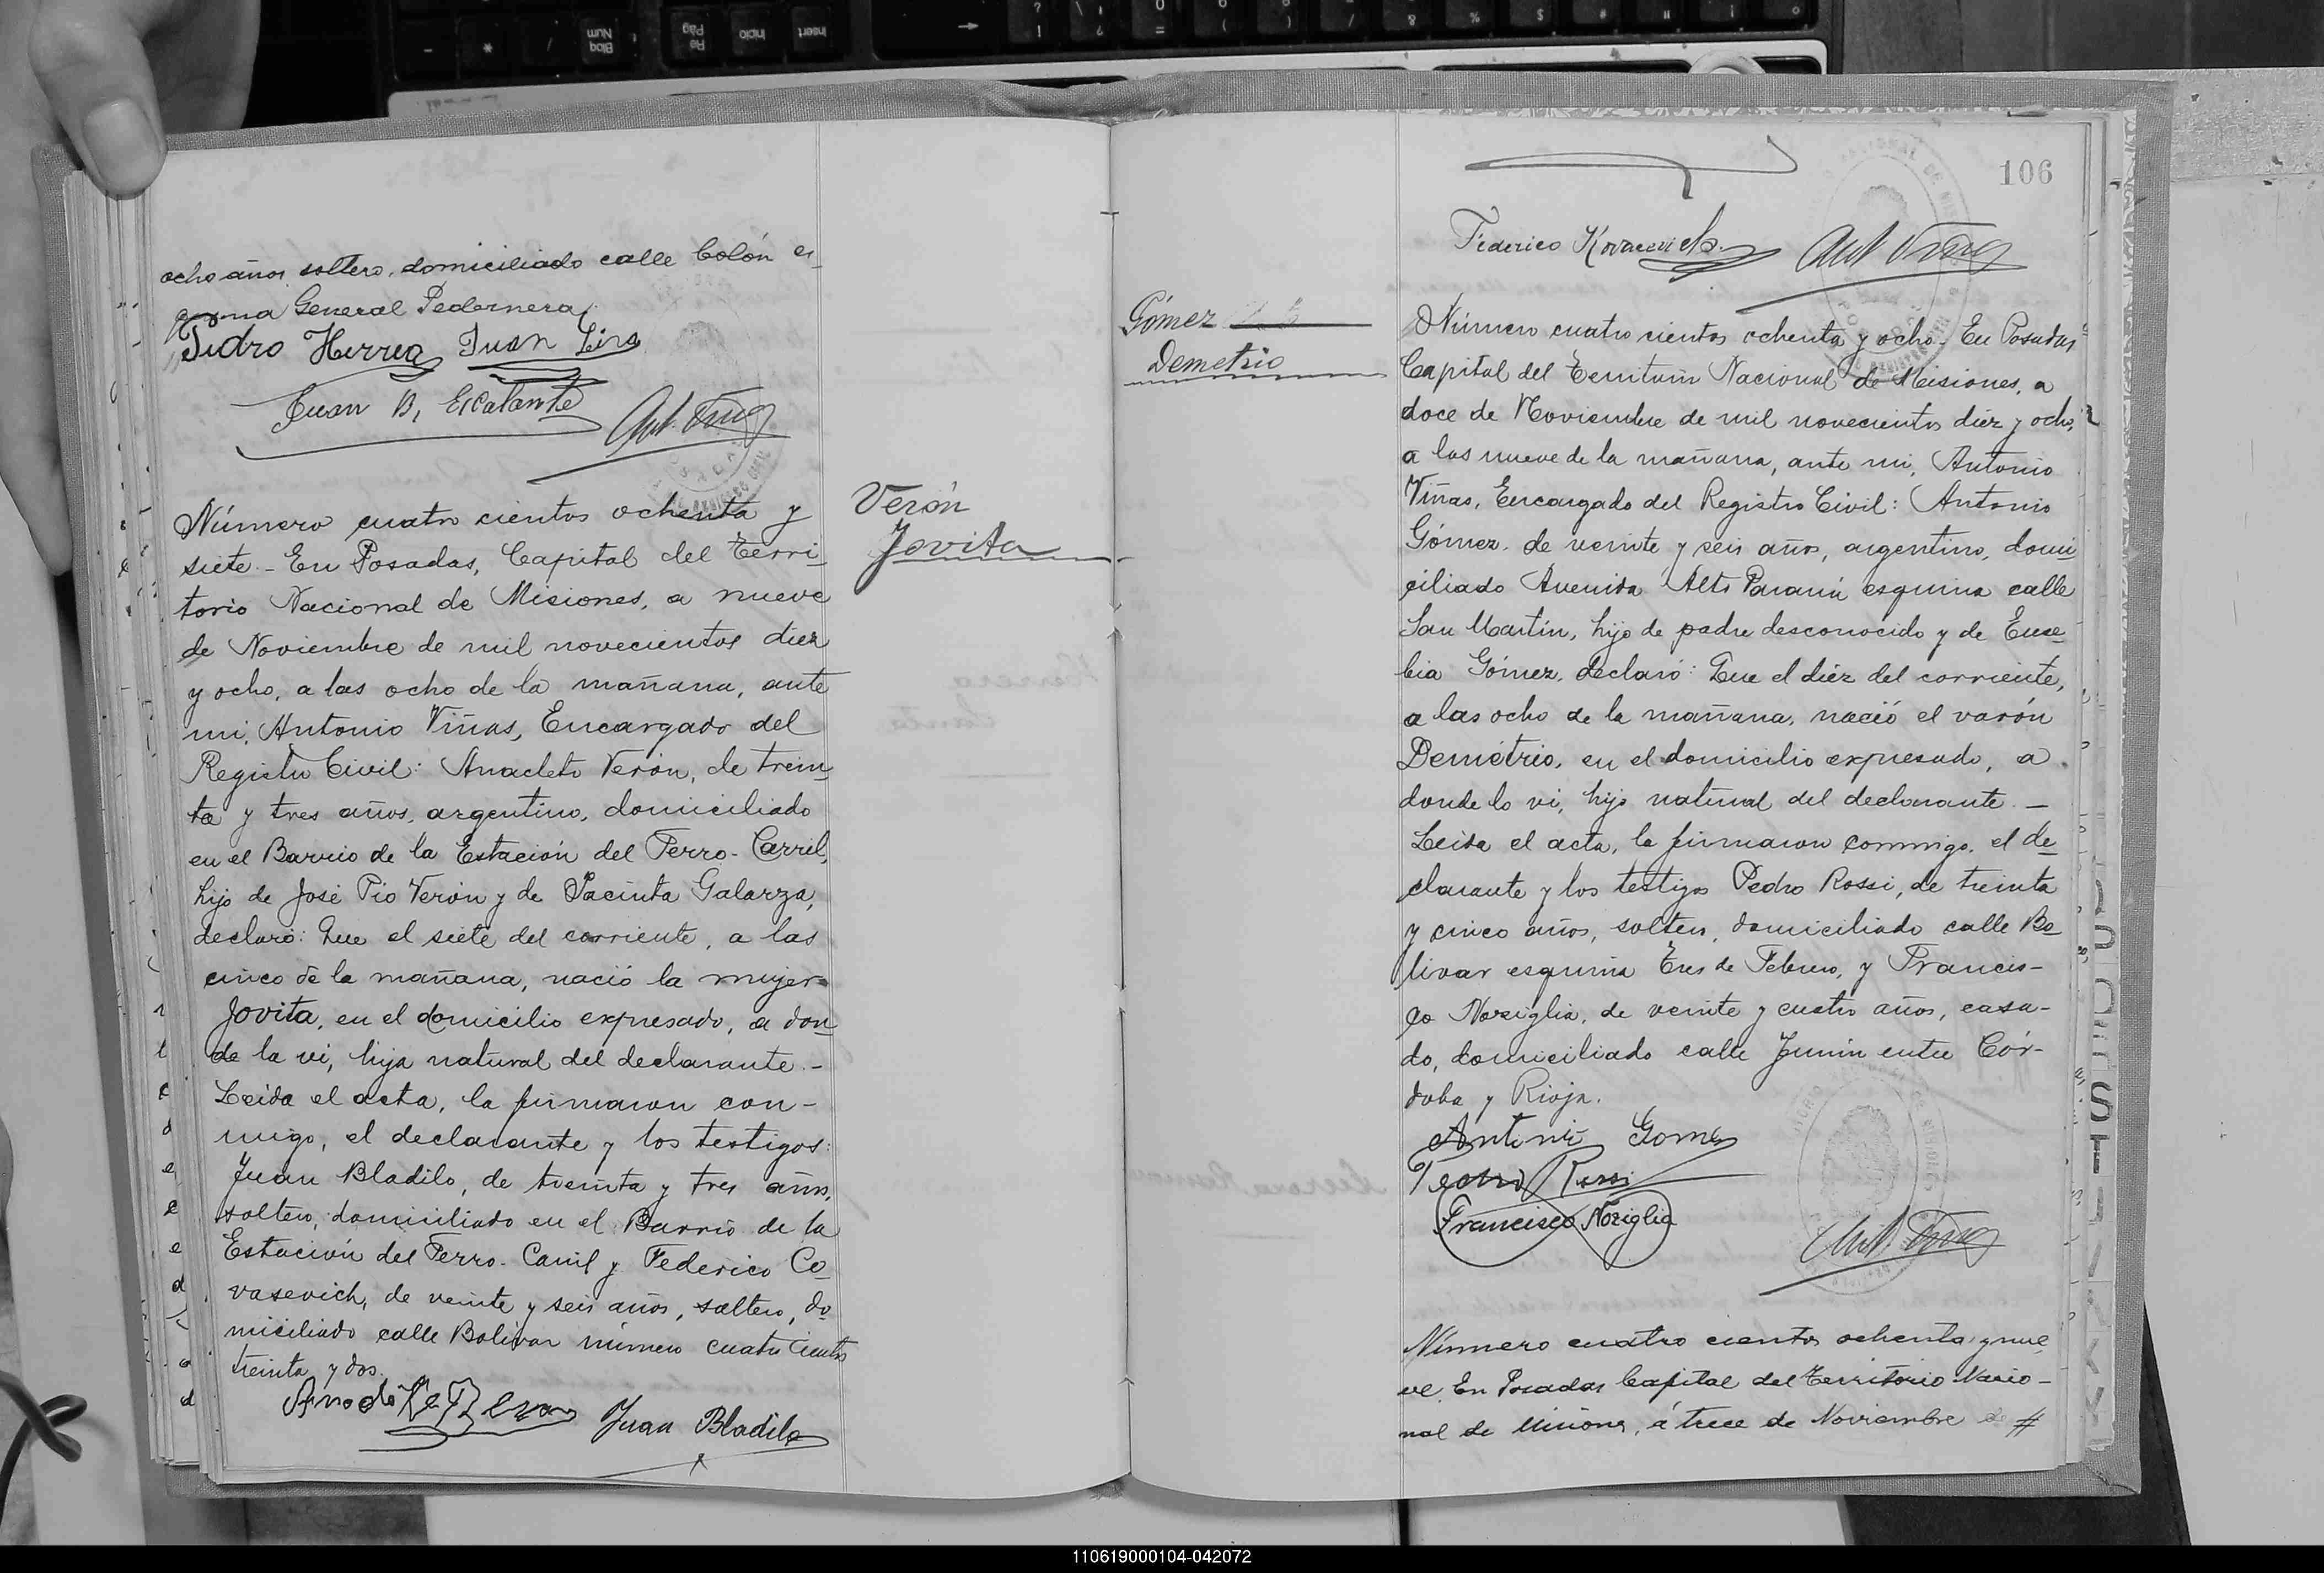 ocho años, soltero, domiciliado calle Colón es
quina General Pedernera.
Pedro Herrera Juan Lira
Juan B. Escalante Ant. Viñas
Verón
Jovita
Número cuatro cientos ochenta y
siete - En Posadas, Capital del Terri
torio Nacional de Misiones, a nueve
de Noviembre de mil novecientos diez
y ocho, a las ocho de la mañana, ante
mi, Antonio Viñas, Encargado del
Registro Civil: Anacleto Verón, de trein
ta y tres años, argentino, domiciliado
en el Barrio de la Estación del Ferro-Carril,
hijo de José Pio Verón y de Jacinta Galarza,
declaró: Que el siete del corriente, a las
cinco de la mañana, nació la mujer
Jovita, en el domicilio expresado, a don
de la vi, hija natural del declarante.-
Leida el acta, la firmaron con-
migo, el declarante y los testigos:
Juan Bladilo, de treinta y tres años,
soltero, domiciliado en el Barrio de la
Estación del Ferro-Carril y Federico Co
vasevich, de veinte y seis años, soltero, do
miciliado calle Bolivar número cuatro cientos
treinta y dos.
Juan Bladilo
106
Federico Kovacevich Ant Viñas
Gómez
Demetrio
Número cuatro cientos ochenta y ocho - En Posadas
Capital del Territorio Nacional de Misiones, a
doce de Noviembre de mil novecientos diez y ocho,
a las nueve de la mañana, ante mi, Antonio
Viñas, Encargado del Registro Civil: Antonio
Gómez, de veinte y seis años, argentino, domi
ciliado Avenida Alto Paraná esquina calle
San Martín, hijo de padre desconocido y de Euse
bia Gómez, declaró: Que el diez del corriente,
a las ocho de la mañana, nació el varón
Demétrio, en el domicilio expresado, a
donde lo vi, hijo natural del declarante. -
Leida el acta, la firmaron conmigo, el de
clarante y los testigos Pedro Rossi, de treinta
y cinco años, soltero, domiciliado calle Bo
livar esquina Tres de Febrero, y Francis-
co Noziglia, de veinte y cuatro años, casa-
do, domiciliado calle Junin entre Cór-
doba y Rioja.
Antonio Gomez
Pedro Rossi
Francisco Noziglia
Ant. Viñas
Número cuatro cientos ochenta y nue
ve. En Posadas Capital del Territorio Nacio-
nal de Misiones, á trece de Noviembre de #
110619000104-042072